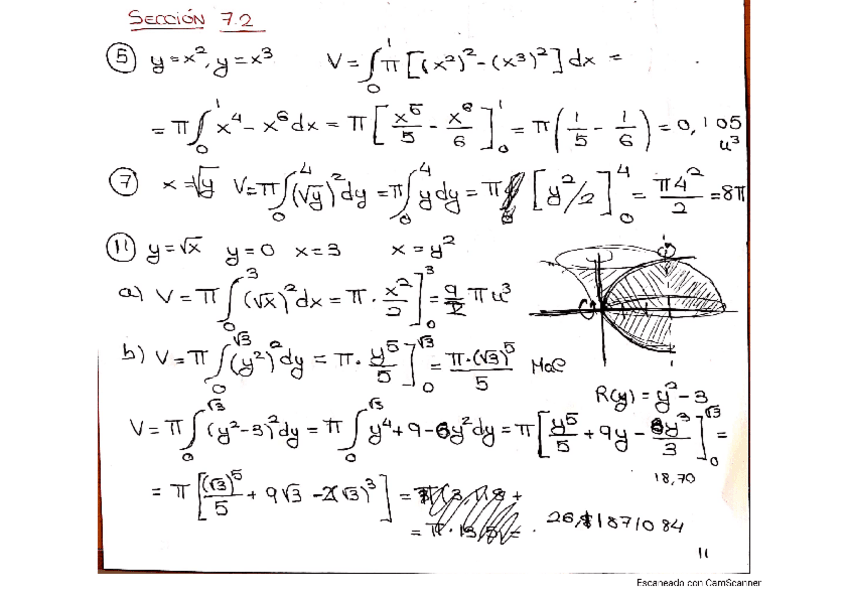 Sección 7.2
⑤ y=x², y=x³ V=∫₀¹π[(x²)²-(x³)²]dx =
= π∫₀¹ x⁴-x⁶dx = π[x⁵/5 - x⁶/6]₀¹ = π(1/5 - 1/6) = 0,105 u³
⑦ x=√y V=π∫₀⁴(√y)²dy = π∫₀⁴ydy = π [y²/2]₀⁴ = π4²/2 = 8π
⑪ y=√x y=0 x=3 x=y²
a) V = π∫₀³(√x)²dx = π · x²/2]₀³ = 9/2 π u³
b) V = π∫₀^√3(y²)²dy = π · y⁵/5]₀^√3 = π·(√3)⁵/5 Mal
R(y) = y²-3
V = π∫₀^√3(y²-3)²dy = π∫₀^√3 y⁴+9-6y²dy = π[y⁵/5 + 9y - 6y³/3]₀^√3 =
18,70
= π[(√3)⁵/5 + 9√3 - 2(√3)³] =
= π · =
11
Escaneado con CamScanner